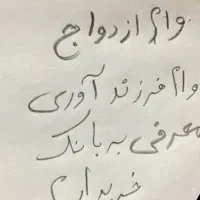 وام ازدواج
وام فرزند آوری
معرفی به بانک
خریدارم